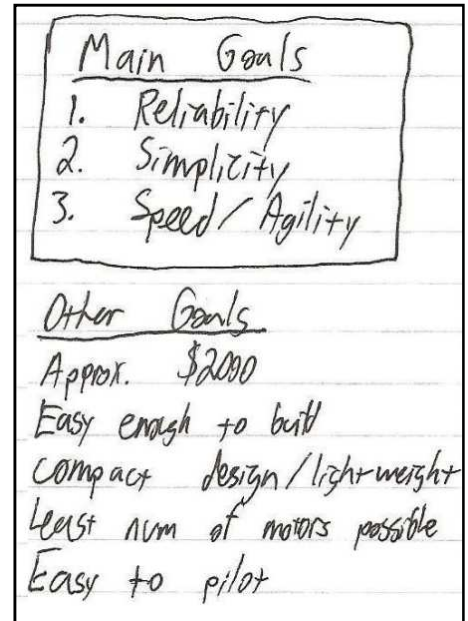 Main Goals
1. Reliability
2. Simplicity
3. Speed/Agility
Other Goals
Approx. $2000
Easy enough to build
compact design/lightweight
Least num of motors possible
Easy to pilot